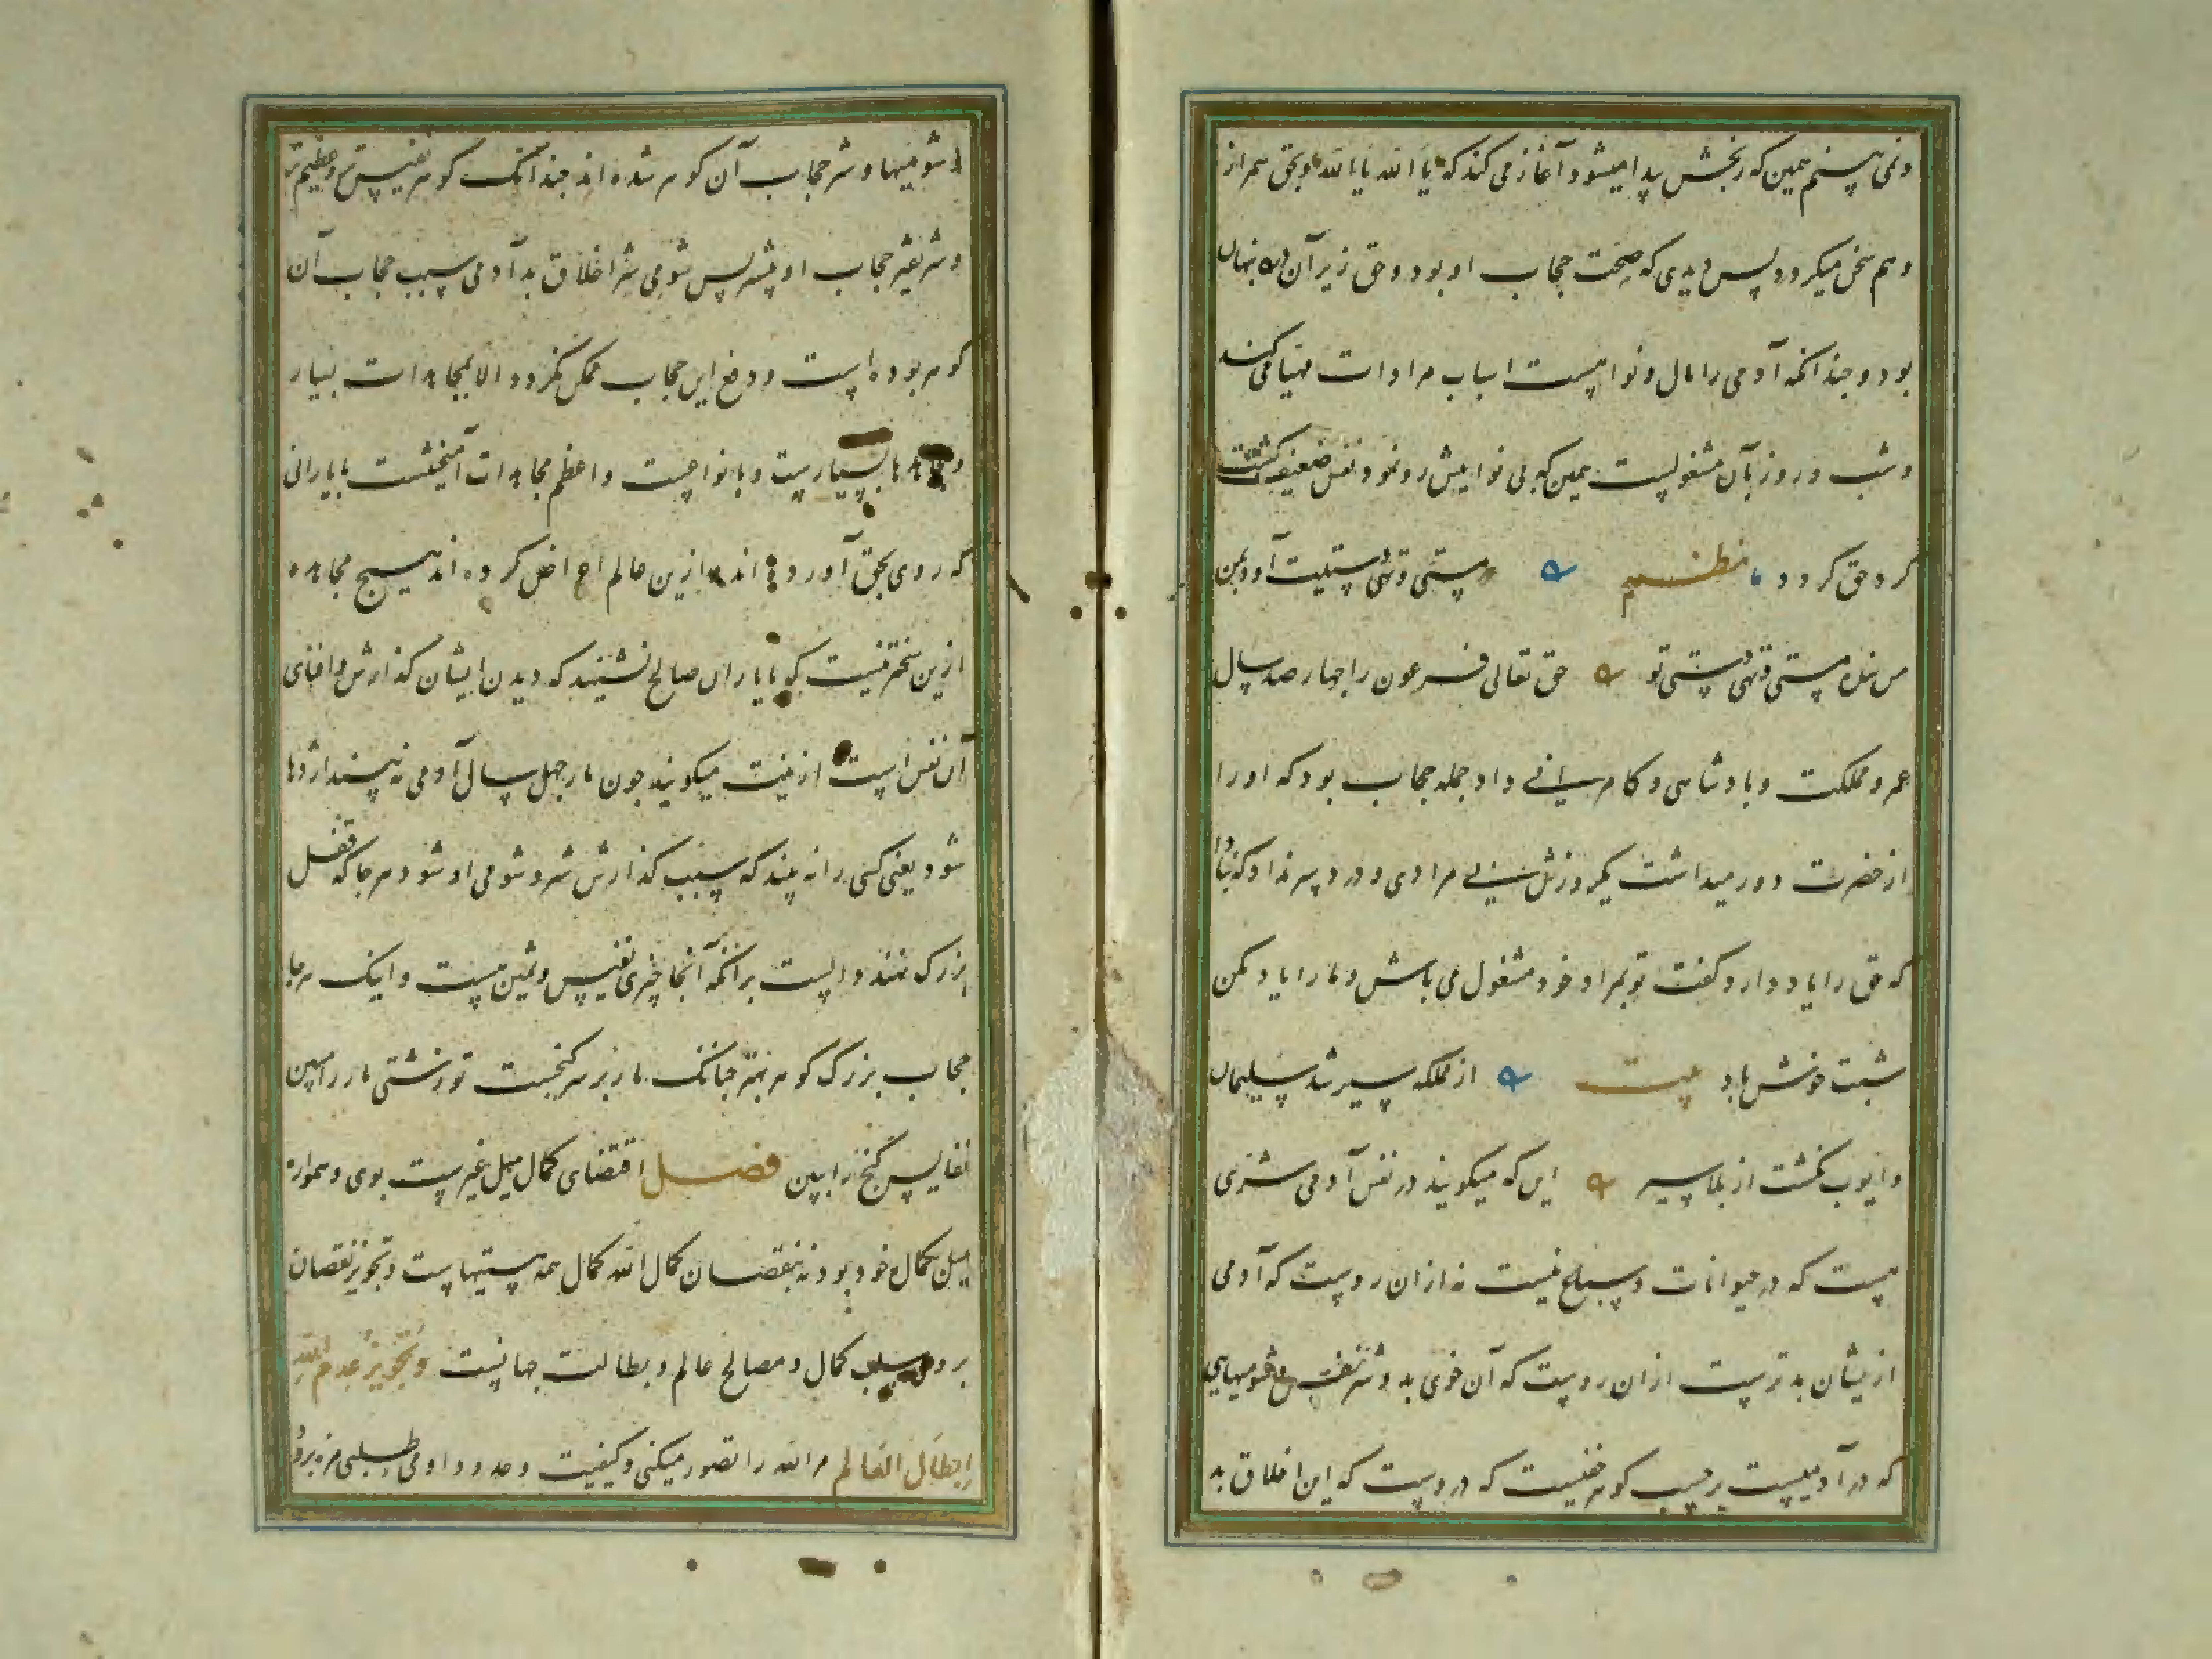 ونمی بینم همین که رنجش پیدا میشود آغاز می کند که یا الله یا الله وبحق همراز
وهم سخن میکردد پس دیدی که صحت حجاب او بود وحق زیر آن درد پنهان
بود وچندانکه آدمی را مال ونوا هست اسباب مرادات مهیا می کند
وشب وروز بآن مشغولست همین که بی نواییش رونمود ونفس ضعیف کشت
کرد حق کردد نظم مستی وتهی دستیت آورد بمن
من بنده مستی وتهی دستی تو حق تعالی فرعون را چهار صد سال
عمر ومملکت وبادشاهی وکامرانی داد جمله حجاب بود که اورا
از حضرت دور میداشت یکروزش بی مرادی ودرد سر نداد که نبادا
که حق را یاد دارد کفت تو بمراد خود مشغول می باش وما را یاد مکن
شبت خوش باد بیت از مملکه سیر شد سلیمان
وایوب نکشت از بلا سیر این که میکویند در نفس آدمی شری
هست که در حیوانات وسباع نیست نه از ان روست که آدمی
ازیشان بدترست از ان روست که آن خوی بد وشر نفس وشومیهایی
که در آدمیست بر حسب کوهر خفیست که دروست که این اخلاق بد
وشومیها وشر حجاب آن کوهر شده اند چندانک کوهر نفیس تر وعظیم تر
وشریفتر حجاب او بیشتر پس شومی شر اخلاق بد آدمی سبب حجاب آن
کوهر بوده است ورفع این حجاب ممکن نکردد الا بمجاهدات بسیار
ومجاهدها بسیارست وبانواعست واعظم مجاهدات آمیختنست با یارانی
که روی بحق آورده اند وازین عالم اعراض کرده اند هیچ مجاهده
ازین سختر نیست که با یاران صالح نشیند که دیدن ایشان کدازش وافنای
آن نفس است ازینست میکویند چون مار چهل سال آدمی نه بیند اژدها
شود یعنی کسی را نه بیند که سبب کدازش شر وشومی او شود هر جا که قفل
بزرک نهند دالست بر آنکه آنجا چیزی نفیس وثمین هست واینک هر جا
حجاب بزرک کوهر بهتر چنانک مار بر سر کنجست تو زشتی مار را مبین
نفایس کنج را ببین فصل اقتضای کمال میل غیر ست بوی وهمواره
میل بکمال خود بود نه بنقصان کمال الله کمال همه هستیهاست وتجویز نقصان
برو سلب کمال ومصالح عالم وبطالت جهانست وتجویز عدم الله
ابطال العالم هر الله را تصور میکنی وکیفیت وحدود او می طلبی مزه برو